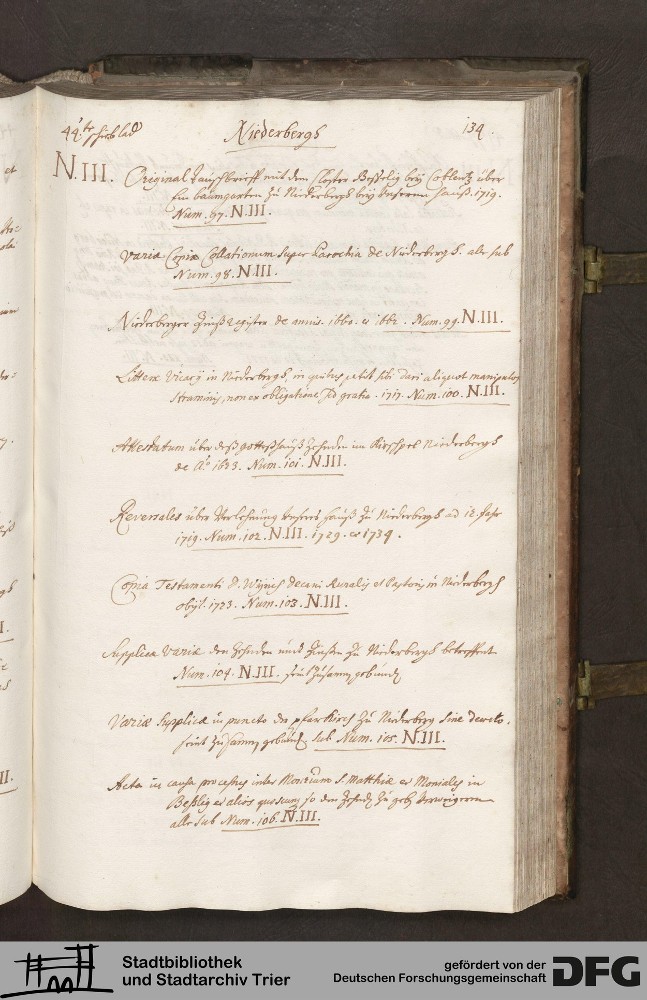 44te schiblad Niederbergs 134.
N.III. Original Tauschbrieff mit dem Closter Besselig bey Coblentz über
Ein baumgarten zu Niederbergs bey unserem hauß. 1719.
Num. 97. N.III.
Variæ Copiæ Collationum super Parochia de Niederbergs. alle sub
Num. 98. N.III.
Niederberger Zinß Register de annis. 1660. et 1662. Num. 99. N.III.
Litteræ Vicarij in Niederbergs, in quibus petit sibi dari aliquot manipulos
straminis, non ex obligatione sed gratia. 1717. Num. 100. N.III.
Attestatum über deß gotteßhauß Zehnden im Kirschpel Niederbergs
de Aº 1623. Num. 101. N.III.
Reversales über Verlehnung unsers hauß zu Niederbergs ad 12. Jahr
1719. Num. 102. N.III. 1729. et 1734.
Copia Testamenti D. Decani Ruralis et Pastoris in Niederbergs
obijt. 1723. Num. 103. N.III.
Supplicæ Variæ den Zehnden undt Zinßen zu Niederbergs betreffent
Num. 104. N.III. seint zusamen gebunden
Variæ Supplicæ in puncto der pfarkirch zu Niederberg sine decreto.
seint zusamen gebunden sub Num. 105. N.III.
Acta in causa processus inter Monrium S. Matthiæ et Moniales in
Beßlig et alios so den Zehnden zu geben verweigeren
alle sub Num. 106. N.III.
Stadtbibliothek
und Stadtarchiv Trier
gefördert von der
Deutschen Forschungsgemeinschaft
DFG